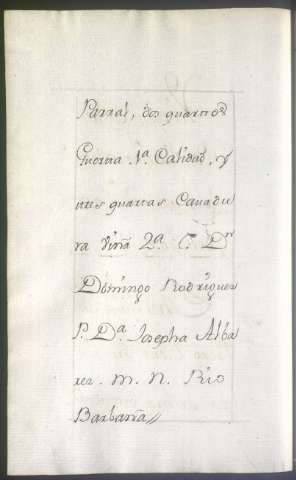 Parral, dos quartos
Huerta 1ª. Calidad, y
tres quartas Cauadu
ra Viñã 2ª. C. Dn
Domingo Rodriguez
P. Dª. Josepha Alba
rez. M. N. Rio
Barbanã//